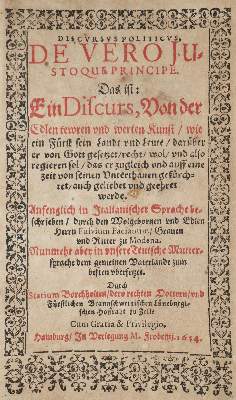 DISCURSUS POLITICUS,
DE VERO JU-
STOQUE PRINCIPE.
Das ist:
Ein Discurs, Von der
Edlen tewren und werten Kunst / wie
ein Fürst sein Landt und Leute / darüber
er von Gott gesetzet / recht / wol / und also
regieren sol / das er zugleich und auff eine
zeit von seinen Unterthanen gefürch-
tet / auch geliebet und geehret
werde.
Anfenglich in Italianischer Sprache be-
schrieben / durch den Wolgebornen und Edlen
Herrn Fulvium Pacianum / Graven
und Ritter zu Modena.
Nunmehr aber in unsere Teutsche Mutter-
sprache dem gemeinen Vaterlandt zum
besten ubersetzet.
Durch
Statium Borcholten / der rechten Doctorn / und
Fürstlichen Braunschweigischen Lüneburgi-
schen Hoffraht zu Zelle
Cum Gratia & Privilegio.
Hamburg / In Verlegung M. Frobenij. 1634.